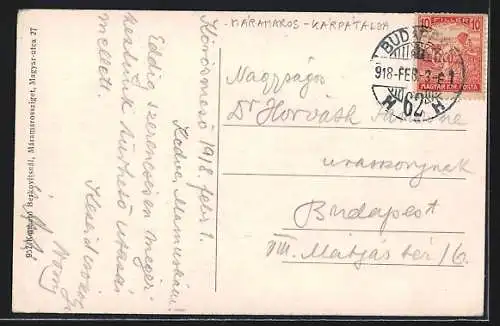 MÁRAMAROS-KÁRPÁTALJA
Kőrösmező 1918. febr 1.
Kedves Mamuskám!
Eddig szerencsésen megér-
keztünk tűrhető utazás
mellett.
Nagyságos
Dr Horváth
urasszonynak
Budapest
VIII. Mátyás tér 16.
10 FILLÉR 10
MAGYAR KIR. POSTA
BUDAPEST
918-FEB-3
62
Berkovitsnál, Máramarossziget, Magyar-utca 27